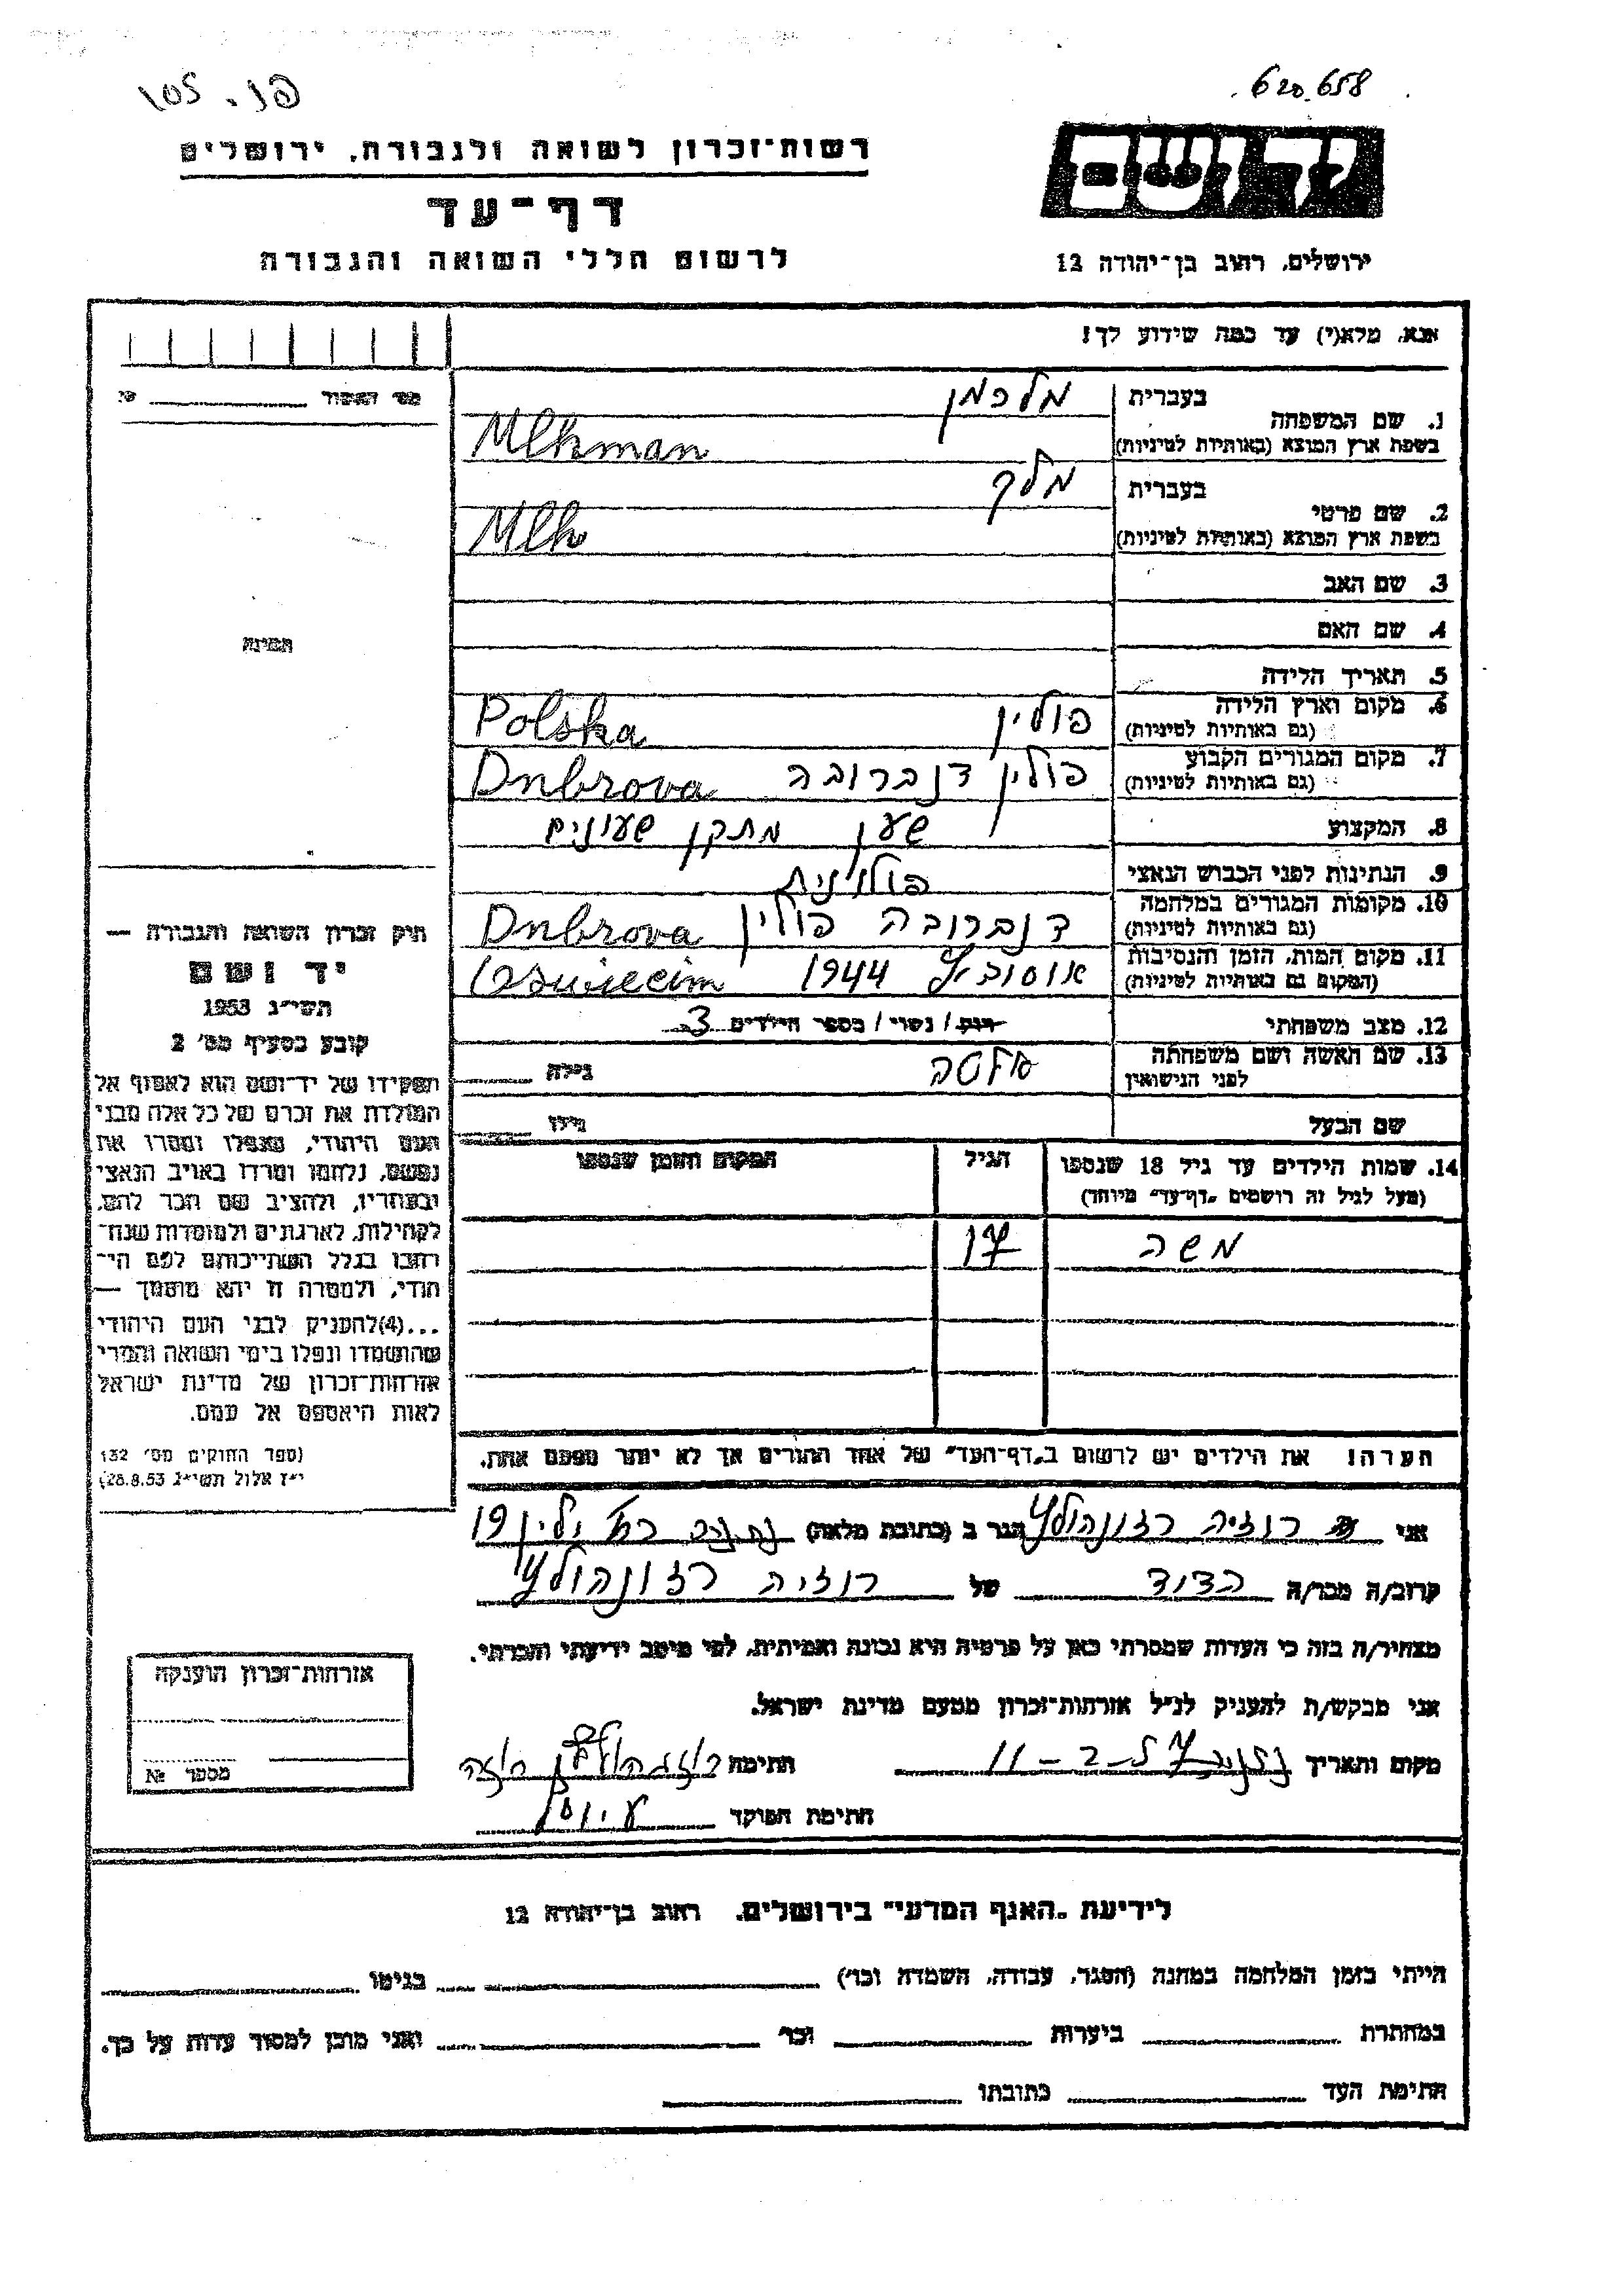 620.658
רשות־זכרון לשואה ולגבורה, ירושלים
דף־עד
לרשום חללי השואה והגבורה
ירושלים, רחוב בן־יהודה 12
אנא, מלא(י) עד כמה שידוע לך!
בעברית מלכמן
1. שם המשפחה
בשפת ארץ המוצא (באותיות לטיניות) Mlkman
בעברית מלך
2. שם פרטי
בשפת ארץ המוצא (באותיות לטיניות) Mlk
3. שם האב
4. שם האם
5. תאריך הלידה
6. מקום וארץ הלידה
(גם באותיות לטיניות) פולין Polska
7. מקום המגורים הקבוע
(גם באותיות לטיניות) פולין דנברובה Dnbrova
8. המקצוע שען מתקן שעונים
9. הנתינות לפני הכבוש הנאצי פולנית
10. מקומות המגורים במלחמה
(גם באותיות לטיניות) דנברובה פולין Dnbrova
11. מקום המות, הזמן והנסיבות
(המקום גם באותיות לטיניות) 1944 Oswiecim
12. מצב משפחתי רווק / נשוי / מספר הילדים 3
13. שם האשה ושם משפחתה
לפני הנישואין גילה
שם הבעל גילו
14. שמות הילדים עד גיל 18 שנספו הגיל המקום והזמן שנספו
(מעל לגיל זה רושמים "דף־עד" מיוחד)
משה 17
הערה! את הילדים יש לרשום ב"דף־העד" של אחד ההורים אך לא יותר מפעם אחת.
מס' האשור
תמונה
חוק זכרון השואה והגבורה —
יד ושם
תשי"ג 1953
קובע בסעיף מס' 2
תפקידו של יד־ושם הוא לאסוף אל
המולדת את זכרם של כל אלה מבני
העם היהודי, שנפלו ומסרו את
נפשם, נלחמו ומרדו באויב הנאצי
ובעוזריו, ולהציב שם וזכר להם,
לקהילות, לארגונים ולמוסדות שנח־
רבו בגלל השתייכותם לעם הי־
הודי, ולמטרה זו יהא מוסמך —
...(4)להעניק לבני העם היהודי
שהושמדו ונפלו בימי השואה והמרי
אזרחות־זכרון של מדינת ישראל
לאות היאספם אל עמם.
(ספר החוקים מס' 132
י"ז אלול תשי"ג 28.8.53)
אני רוזיה רזונהולץ הגר ב (כתובת מלאה) ילין 19
קרוב/ה מכר/ה הדוד של רוזיה רזונהולץ
מצהיר/ה בזה כי העדות שמסרתי כאן על פרטיה היא נכונה ואמיתית, לפי מיטב ידיעתי והכרתי.
אני מבקש/ת להעניק לנ"ל אזרחות־זכרון מטעם מדינת ישראל.
מקום ותאריך 11-2- חתימה
חתימת הפוקד
אזרחות־זכרון הוענקה
מספר №
לידיעת "האגף המדעי" בירושלים, רחוב בן־יהודה 12
הייתי בזמן המלחמה במחנה (הסגר, עבודה, השמדה וכו') בגיטו
במחתרת ביערות וכו' ואני מוכן למסור עדות על כך.
חתימת העד כתובתו